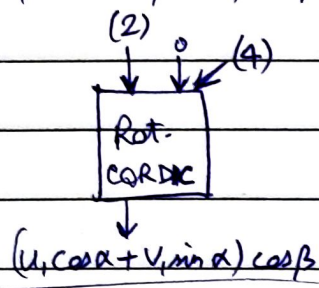 (2) 0 (4)
Rot.
CORDIC
(u, cosα + V, sin α) cosβ